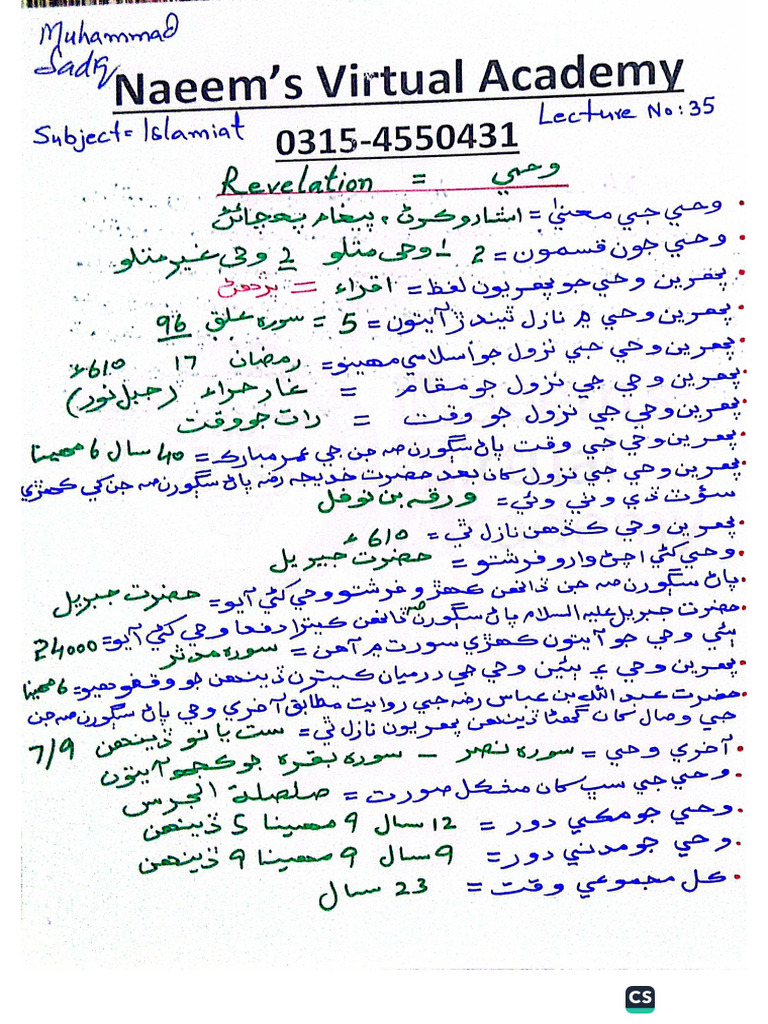 Muhammad
Sadiq
Naeem's Virtual Academy
Subject = Islamiat
Lecture No: 35
0315-4550431
Revelation = وحي
وحي جي معنيٰ = اشارو ڪرڻ ، پيغام پهچائڻ
وحي جون قسمون = 2 1- وحی متلو 2 وحی غير متلو
پهرين وحي جو پهريون لفظ = اقراء = پڙهڻ
پهرين وحي ۾ نازل ٿيندڙ آيتون = 5 = سوره علق 96
پهرين وحي جي نزول جو اسلامي مهينو = رمضان 17 610ء
پهرين وحي جي نزول جو مقام = غار حراء (جبل نور)
پهرين وحي جي نزول جو وقت = رات جو وقت
پهرين وحي جي وقت پاڻ سڳورن صه جن جي عمر مبارڪ = 40 سال 6 مهينا
پهرين وحي جي نزول کان بعد حضرت خديجه رضه پاڻ سڳورن صه جن کي ڪهڙي
سؤٽ ڏي وٺي وئي = ورقه بن نوفل
پهرين وحي ڪڏهن نازل ٿي = 610ء
وحي کڻي اچڻ وارو فرشتو = حضرت جبريل
پاڻ سڳورن صه جن ڏانهن ڪهڙو فرشتو وحي کڻي آيو = حضرت جبريل
حضرت جبريل عليه السلام پاڻ سڳورن صه ڏانهن ڪيترا دفعا وحي کڻي آيو = 24000
ٻئي وحي جو آيتون ڪهڙي سورت ۾ آهن = سوره مدثر
پهرين وحي ۽ ٻئين وحي جي درميان ڪيترن ڏينهن جو وقفو هيو = 6 مهينا
حضرت عبد الله بن عباس رضه جي روايت مطابق آخري وحي پاڻ سڳورن صه جن
جي وصال کان گهڻا ڏينهن پهريون نازل ٿي = ست يا نو ڏينهن 7/9
آخري وحي = سوره نصر - سوره بقره جو ڪجهه آيتون
وحي جي سڀ کان مشڪل صورت = صلصلة الجرس
وحي جو مڪي دور = 12 سال 9 مهينا 5 ڏينهن
وحي جو مدني دور = 9 سال 9 مهينا 9 ڏينهن
ڪل مجموعي وقت = 23 سال
CS